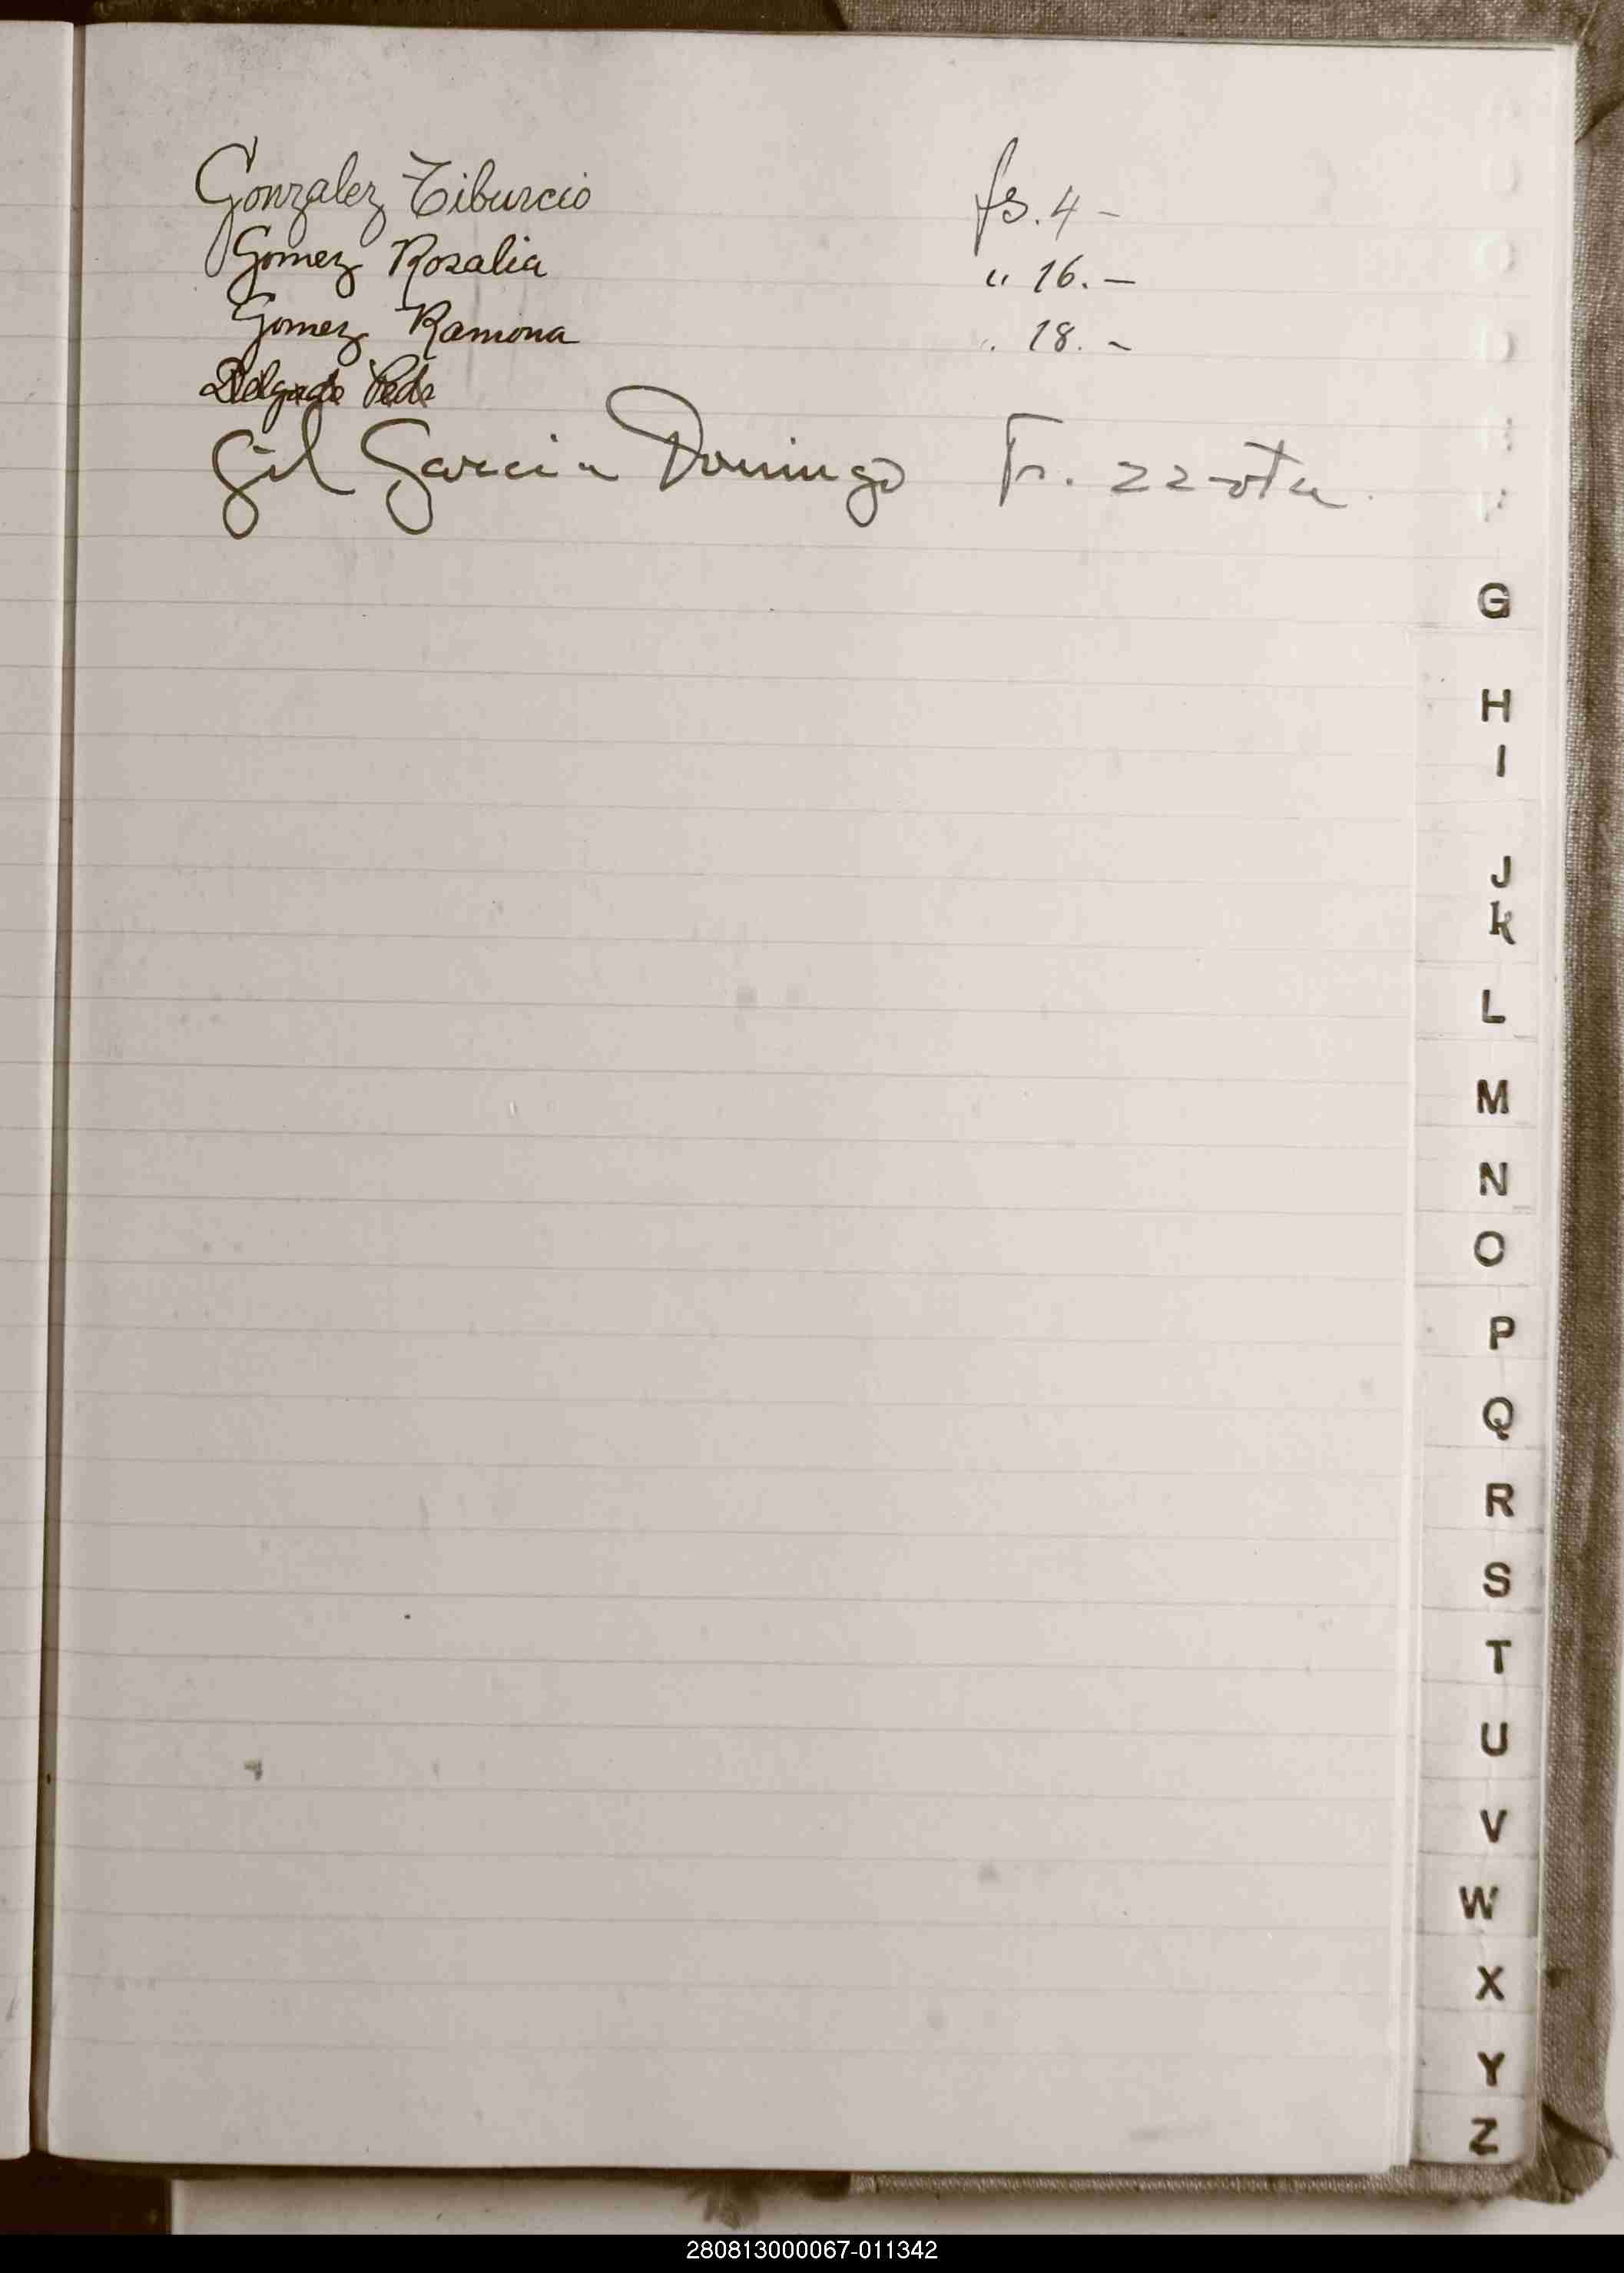 Gonzalez Tiburcio fs. 4 -
Gomez Rosalia " 16. -
Gomez Ramona " 18. -
Delgado
Gil Garcia Domingo Fs. 22 vta
G
H
I
J
K
L
M
N
O
P
Q
R
S
T
U
V
W
X
Y
Z
280813000067-011342